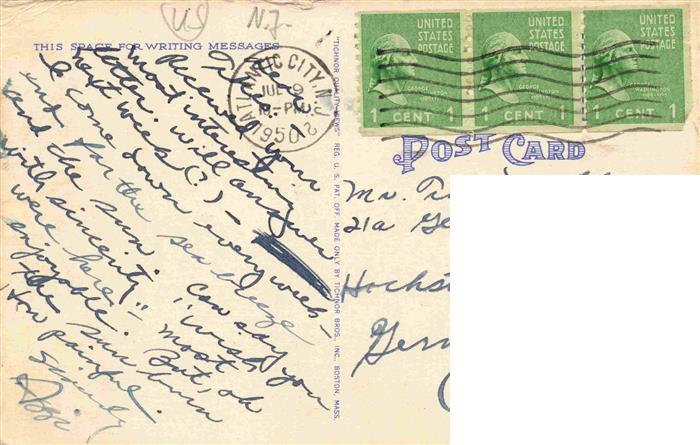 US N.J.
THIS SPACE FOR WRITING MESSAGES
Received your
most interesting
letter. Will answer
next week (?) –
I come down every week-
end for the sea breeze
and the sun. Can say
with sincerity "wish you
were here" – most
enjoyable. But, oh
the sun burn
too painful.
Sincerely
"TICHNOR QUALITY VIEWS" REG. U.S. PAT. OFF. MADE ONLY BY TICHNOR BROS., INC., BOSTON, MASS.
ATLANTIC CITY, N.J.
JUL 9
1950
UNITED STATES POSTAGE
GEORGE WASHINGTON
1 CENT 1
UNITED STATES POSTAGE
GEORGE WASHINGTON
1 CENT 1
UNITED STATES POSTAGE
GEORGE WASHINGTON
1 CENT 1
POST CARD
Mr.
21a Ge
Hochst
Germ